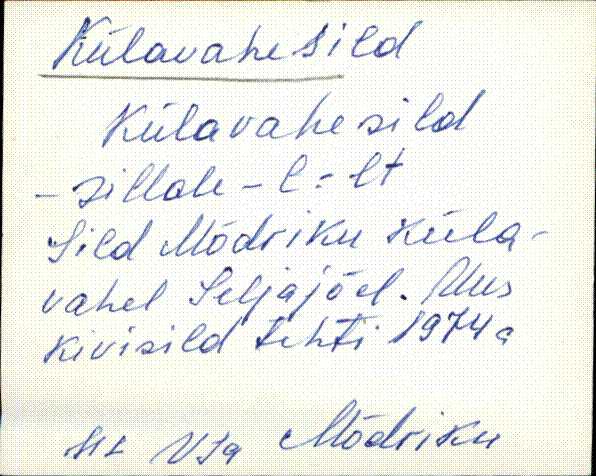 Külavahesild
Külavahesild
- sillale - l = lt
Sild Mõdriku küla-
vahel Seljajõel. Uus
kivisild tehti 1974 a
VJg Mõdriku